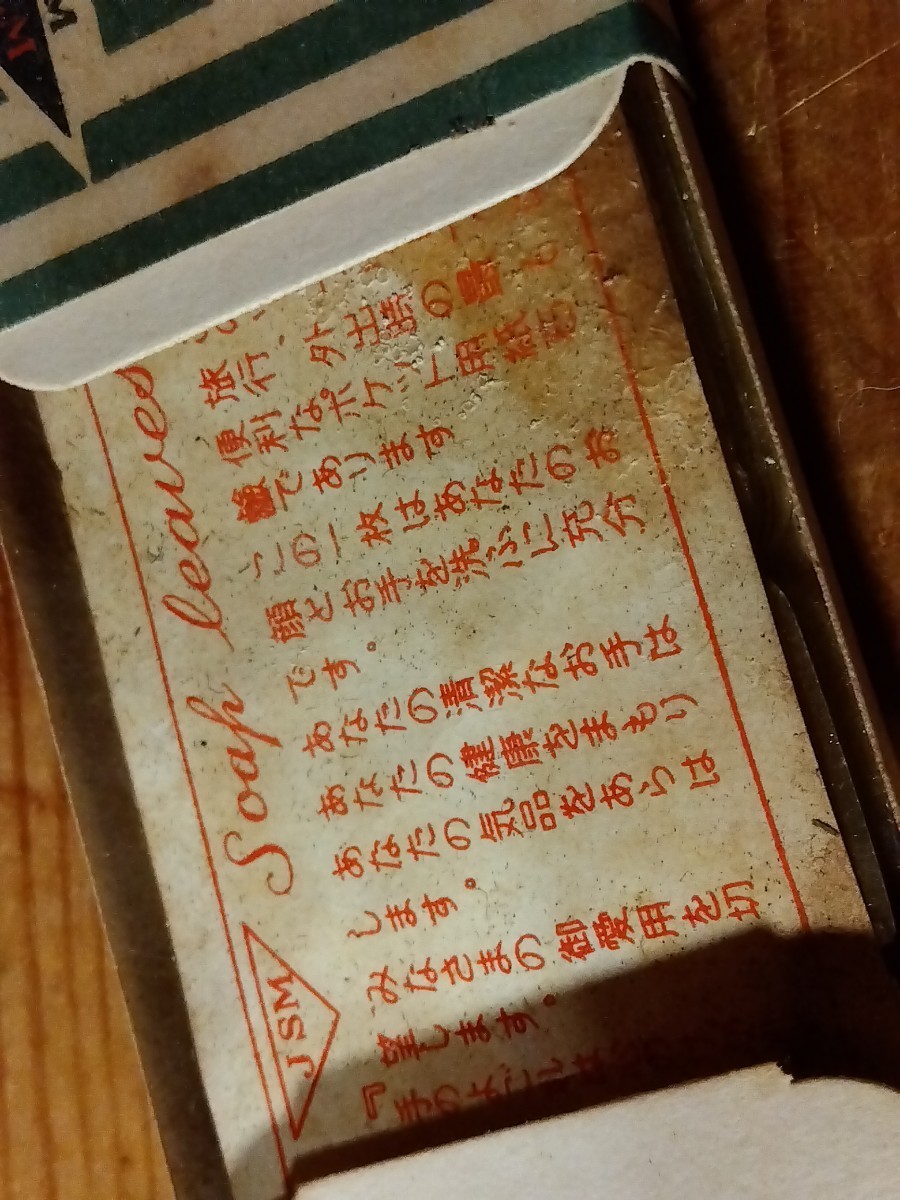 JSM Soap leaves
旅行、外出時の も
便利なポケット用紙石
鹸であります
この一枚はあなたのお
顔とお手を洗ふに充分
です。
あなたの清潔なお手は
あなたの健康をまもり
あなたの気品をあらは
します。
みなさまの御愛用を切
望します。
『手のよごれは